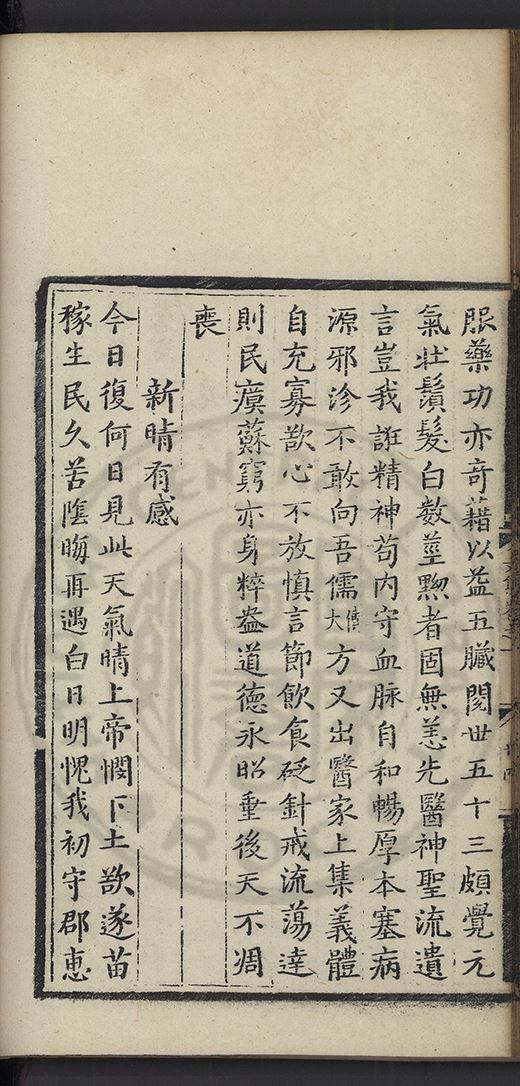 服藥功亦奇藉以益五臟閱世五十三頗覺元
氣壯鬚髮白數莖黟者固無恙先醫神聖流遺
言豈我誑精神苟內守血脉自和暢厚本塞病
源邪沴不敢向吾儒大儒方又出醫家上集義體
自充寡欲心不放慎言節飲食砭針戒流蕩達
則民瘼蘇窮亦身粹盎道德永昭垂後天不凋
喪
新晴有感
今日復何日見此天氣晴上帝憫下土欲遂苗
稼生民久苦陰晦再遇白日明愧我初守郡惠